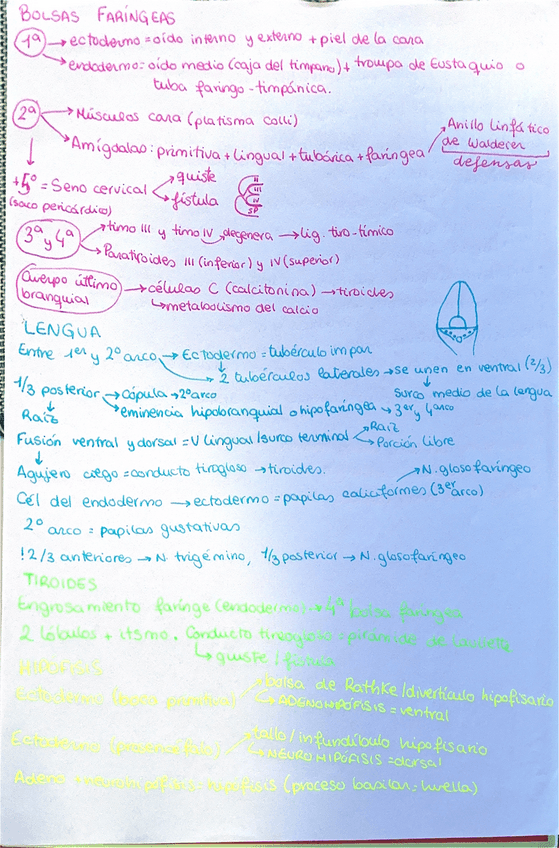 BOLSAS FARÍNGEAS
1ª → ectodermo = oído interno y externo + piel de la cara
→ endodermo = oído medio (caja del tímpano) + trompa de Eustaquio o
tuba faringo-timpánica.
2ª → Músculos cara (platisma colli)
→ Amígdalas: primitiva + lingual + tubárica + faríngea
Anillo linfático
de Waldeyer
defensas
+5º = Seno cervical → quiste
→ fístula
(saco pericárdico)
II
III
IV
SP
3ª y 4ª → timo III y timo IV → degenera → lig. tiro-tímico
→ Paratiroides III (inferior) y IV (superior)
Cuerpo último
branquial → células C (calcitonina) → tiroides
→ metabolismo del calcio
LENGUA
Entre 1er y 2º arco → Ectodermo = tubérculo impar
→ 2 tubérculos laterales → se unen en ventral (2/3)
surco medio de la lengua
1/3 posterior → cópula → 2º arco
→ eminencia hipobranquial o hipofaríngea → 3er y 4 arco
Raíz
Fusión ventral y dorsal = V lingual / surco terminal → Raíz
→ Porción libre
Agujero ciego = conducto tirogloso → tiroides.
Cél del endodermo → ectodermo = papilas caliciformes (3er arco) → N. glosofaríngeo
2º arco = papilas gustativas
! 2/3 anteriores → N trigémino, 1/3 posterior → N. glosofaríngeo
TIROIDES
Engrosamiento faringe (endodermo) → 4ª bolsa faríngea
2 lóbulos + itsmo. Conducto tireogloso = pirámide de
→ quiste / fístula
HIPÓFISIS
Ectodermo (boca primitiva) → bolsa de Rathke / divertículo hipofisario
→ ADENOHIPÓFISIS = ventral
Ectodermo (prosencéfalo) → tallo / infundíbulo hipofisario
→ NEUROHIPÓFISIS = dorsal
Adeno + neurohipófisis = hipófisis (proceso basilar, huella)